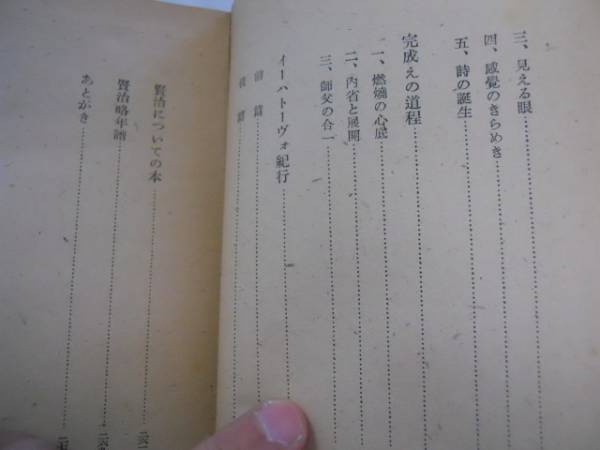 三、見える眼
四、感覺のきらめき
五、詩の誕生
完成えの道程
一、燃燒の心底
二、内省と展開
三、師父の合一
イーハトーヴォ紀行
前篇
後篇
賢治についての本
賢治略年譜
あとがき